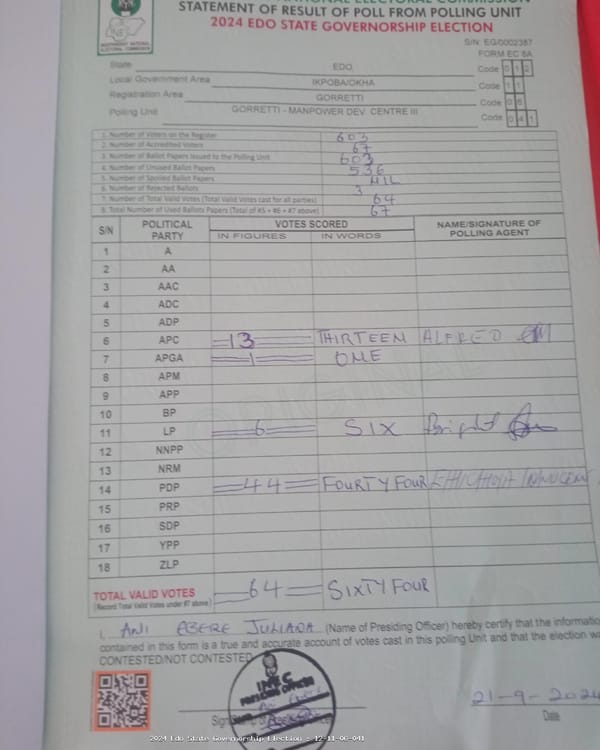 STATEMENT OF RESULT OF POLL FROM POLLING UNIT
2024 EDO STATE GOVERNORSHIP ELECTION
S/N: EG/0002387
FORM EC 8A
INDEPENDENT NATIONAL ELECTORAL COMMISSION
State EDO Code 0 1 2
Local Government Area IKPOBA/OKHA Code 1 1
Registration Area GORRETTI Code 0 6
Polling Unit GORRETTI - MANPOWER DEV. CENTRE III Code 0 4 1
1. Number of Voters on the Register 603
2. Number of Accredited Voters 67
3. Number of Ballot Papers Issued to the Polling Unit 603
4. Number of Unused Ballot Papers 536
5. Number of Spoiled Ballot Papers NIL
6. Number of Rejected Ballots 3
7. Number of Total Valid Votes (Total Valid Votes cast for all parties) 64
8. Total Number of Used Ballots Papers (Total of #5 + #6 + #7 above) 67
S/N POLITICAL PARTY VOTES SCORED NAME/SIGNATURE OF POLLING AGENT
IN FIGURES IN WORDS
1 A
2 AA
3 AAC
4 ADC
5 ADP
6 APC 13 THIRTEEN ALFRED
7 APGA 1 ONE
8 APM
9 APP
10 BP
11 LP 6 SIX Bright
12 NNPP
13 NRM
14 PDP 44 FOURTYFOUR
15 PRP
16 SDP
17 YPP
18 ZLP
TOTAL VALID VOTES 64 SIXTYFOUR
(Record Total Valid Votes under #7 above)
I, ANI EBERE JULIANA (Name of Presiding Officer) hereby certify that the informatio
contained in this form is a true and accurate account of votes cast in this polling Unit and that the election wa
CONTESTED/NOT CONTESTED
INEC
PRESIDING OFFICER
21-9-2024
Date
2024 Edo State Governorship Election : 12-11-06-041